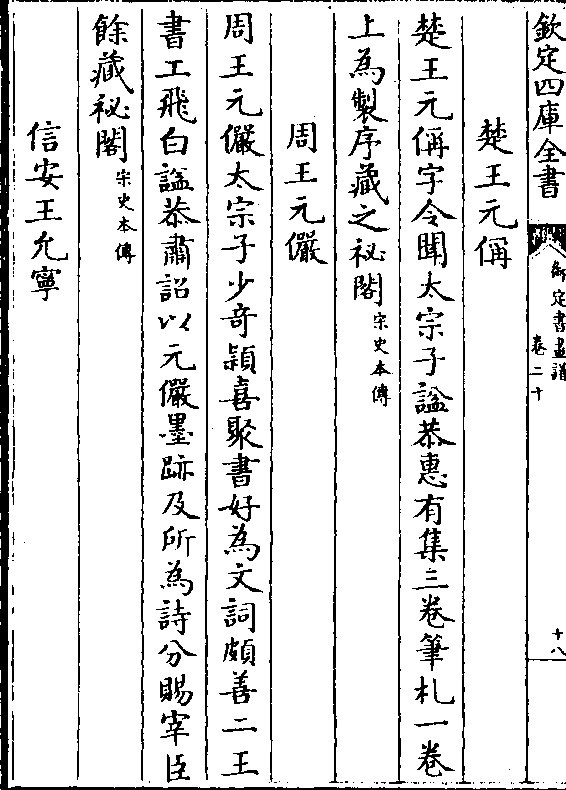 欽定四庫全書
御定書畫譜
卷二十
十八
楚王元偁
楚王元偁字令聞太宗子諡恭惠有集三卷筆札一卷
上為製序藏之祕閣宋史本傳
周王元儼
周王元儼太宗子少奇頴喜聚書好為文詞頗善二王
書工飛白諡恭肅詔以元儼墨跡及所為詩分賜宰臣
餘藏祕閣宋史本傳
信安王允寧